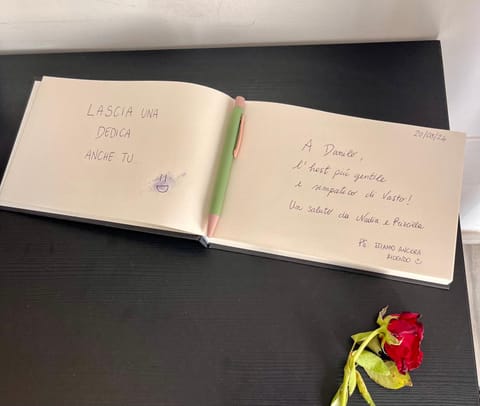 LASCIA UNA
DEDICA
ANCHE TU
20/05/24
A Danilo,
l'host più gentile
e simpatico di Vasto!
Un saluto da Nadia e Priscilla
PS. STIAMO ANCORA
RIDENDO